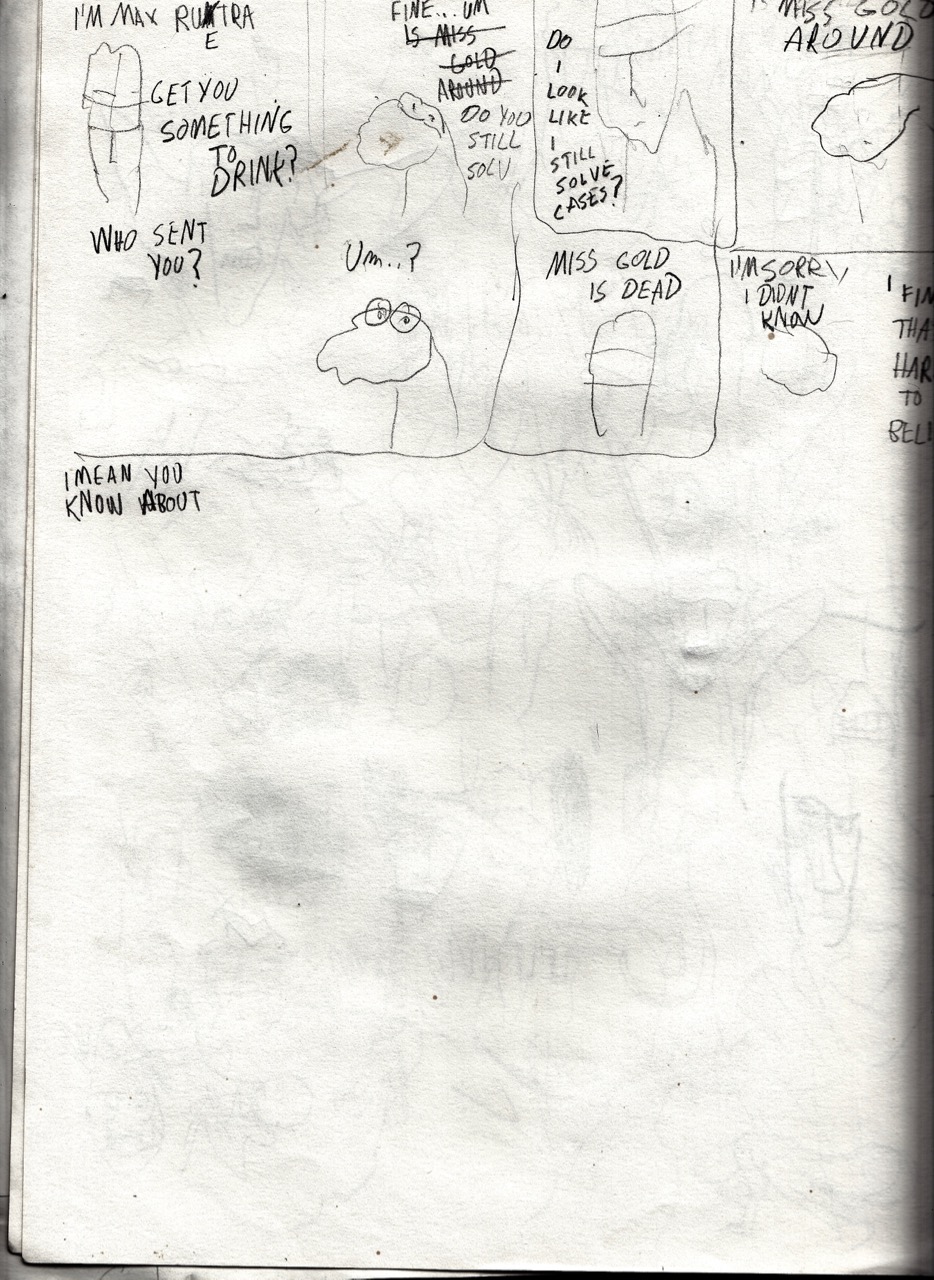 I'M MAX RUXTRA
E
GET YOU
SOMETHING
TO
DRINK?
FINE... UM
IS MISS
GOLD
AROUND
DO YOU
STILL
SOLV
DO
I
LOOK
LIKE
I
STILL
SOLVE
CASES?
IS MISS GOLD
AROUND
WHO SENT
YOU?
Um..?
MISS GOLD
IS DEAD
I'M SORRY
I DIDNT
KNOW
I FIN
THA
HAR
TO
BELI
I MEAN YOU
KNOW ABOUT